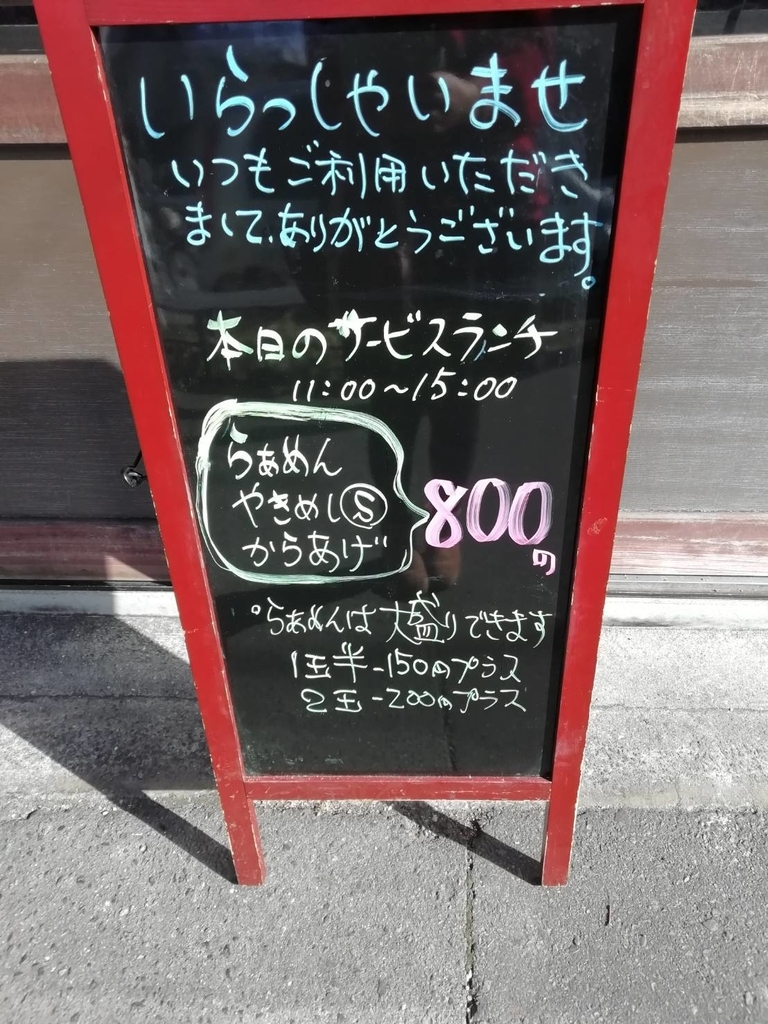 いらっしゃいませ
いつもご利用いただき
まして、ありがとうございます。
本日のサービスランチ
11:00〜15:00
らぁめん
やきめしⓈ
からあげ
800円
。らぁめんは大盛りできます
1玉半-150円プラス
2玉-200円プラス